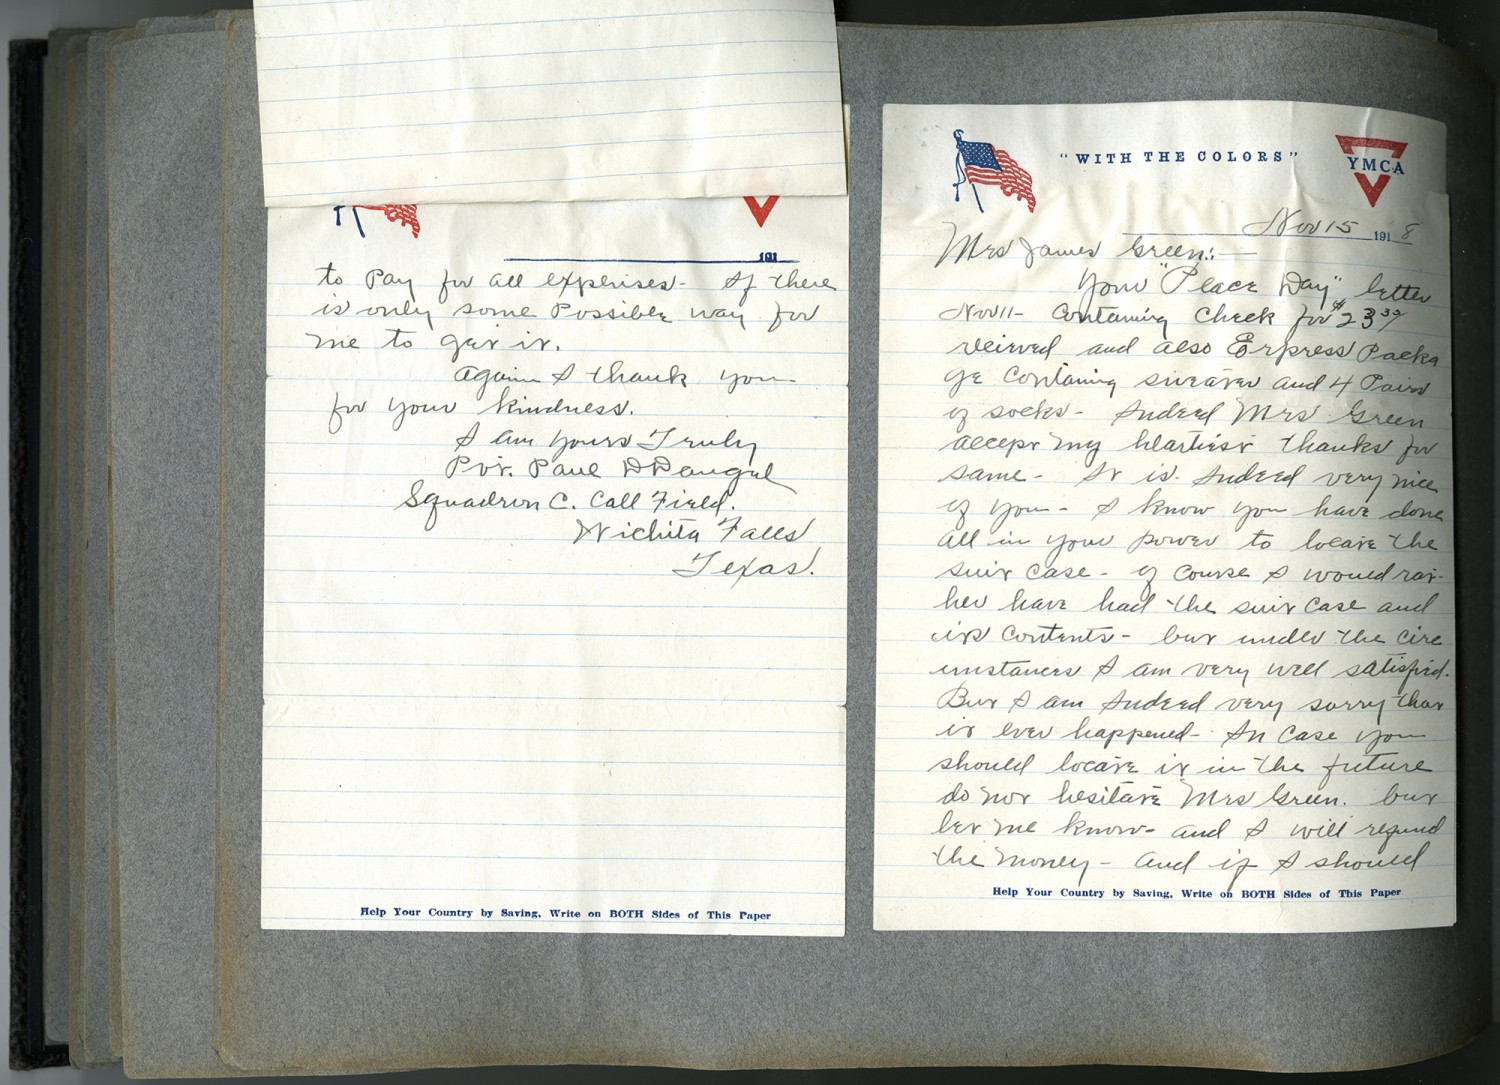 191
to Pay for all expenses - If there
is only some Possible way for
me to get it.
Again I thank you -
for your kindness.
I am yours Truly
Pvt. Paul
Squadron C. Call Field.
Wichita Falls
Texas.
Help Your Country by Saving, Write on BOTH Sides of This Paper
"WITH THE COLORS"
YMCA
Nov 15 1918
Mrs James Green:-
Your "Peace Day" letter
Nov 11 - Containing Check for $23
recieved and also Express Packa
ge Containing sweater and 4 Pairs
of socks - Indeed Mrs Green
accept my heartiest thanks for
same - It is Indeed very nice
of you - I know you have done
all in your power to locate the
suit case - of course I would rat-
her have had the suit case and
its contents - but under the circ
umstances I am very well satisfied.
But I am Indeed very sorry that
it ever happened - In case you
should locate it in the future
do not hesitate Mrs Green. but
let me know - and I will refund
the money - and if I should
Help Your Country by Saving, Write on BOTH Sides of This Paper